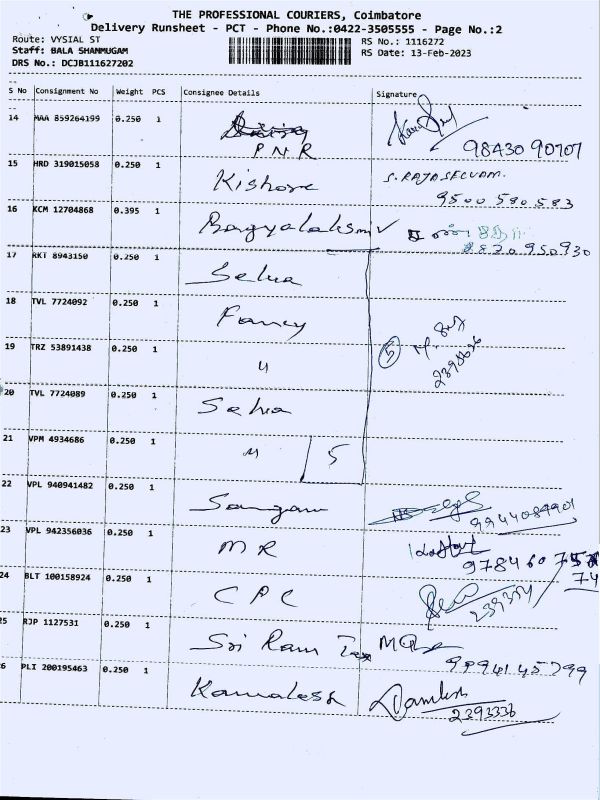 THE PROFESSIONAL COURIERS, Coimbatore
Delivery Runsheet - PCT - Phone No.:0422-3505555 - Page No.:2
Route: VYSIAL ST
RS No.: 1116272
Staff: BALA SHANMUGAM
RS Date: 13-Feb-2023
DRS No.: DCJB111627202
S No Consignment No Weight PCS Consignee Details Signature
14 MAA 859264199 0.250 1
PNR 98430 90707
15 HRD 319015058 0.250 1 Kishore S. RAJASELVAM.
9500 590 583
16 KCM 12704868 0.395 1 Bagyalaksmi
950930
17 RKT 8943150 0.250 1 Selva
18 TVL 7724092 0.250 1 Fancy
19 TRZ 53891438 0.250 1 "
5
20 TVL 7724089 0.250 1 Selva
21 VPM 4934686 0.250 1 " 5
22 VPL 940941482 0.250 1 Sangam
9944084901
23 VPL 942356036 0.250 1 MR
97846075
74
24 BLT 100158924 0.250 1 CPC
25 RJP 1127531 0.250 1 Sri Ram Tex
9994145799
26 PLI 200195463 0.250 1 Kamalesh Kamlesh
2393336